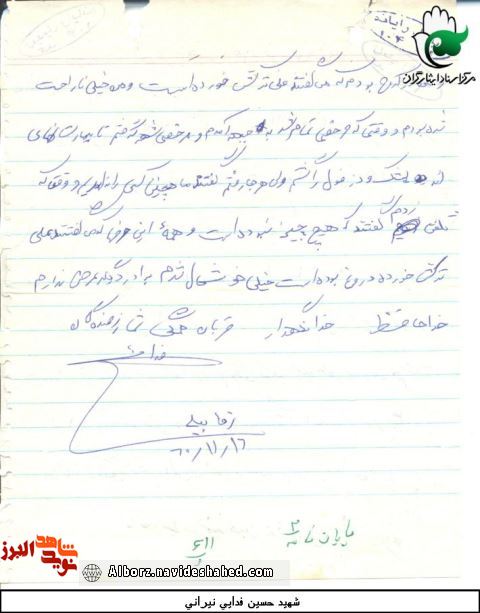 مرکز اسناد ایثارگران
رایانه
کرج بودم که می گفتند علی ترکش خورده است و من خیلی ناراحت
شده بودم و وقتی که مرخصی تمام شد به جبهه آمدم و مرخصی شهر گرفتم تا بیمارستانهای
اندیمشک و دزفول را گشتم ولی هر جا رفتم گفتند ما همچنین کسی را نداریم و وقتی که
تلفن زدم گفتند که هیچ چیز نبوده است و همه این حرفها که می گفتند علی
ترکش خورده دروغ بوده است خیلی خوشحال شدم برادر دیگر عرضی ندارم
خداحافظ خدانگهدار قربان همگی شما رزمندگان
فدائی
۶۰/۱۱/۱۶
پایان نامه ۳
۶۱۱
نوید شاهد البرز
Alborz.navideshahed.com
شهید حسین فدایی نیرانی